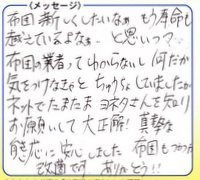 (メッセージ)
布団新しくしたいなぁ もう寿命も
越えているよなぁ… と思いつつ…
布団の業者ってわからないし 何だか
気をつけなきゃと ちゅうちょしていましたが
ネットでたまたま ヨネタさんを知り
お願いして大正解! 真摯な
対応に安心しました 布団もつかり
です ありがとう!!